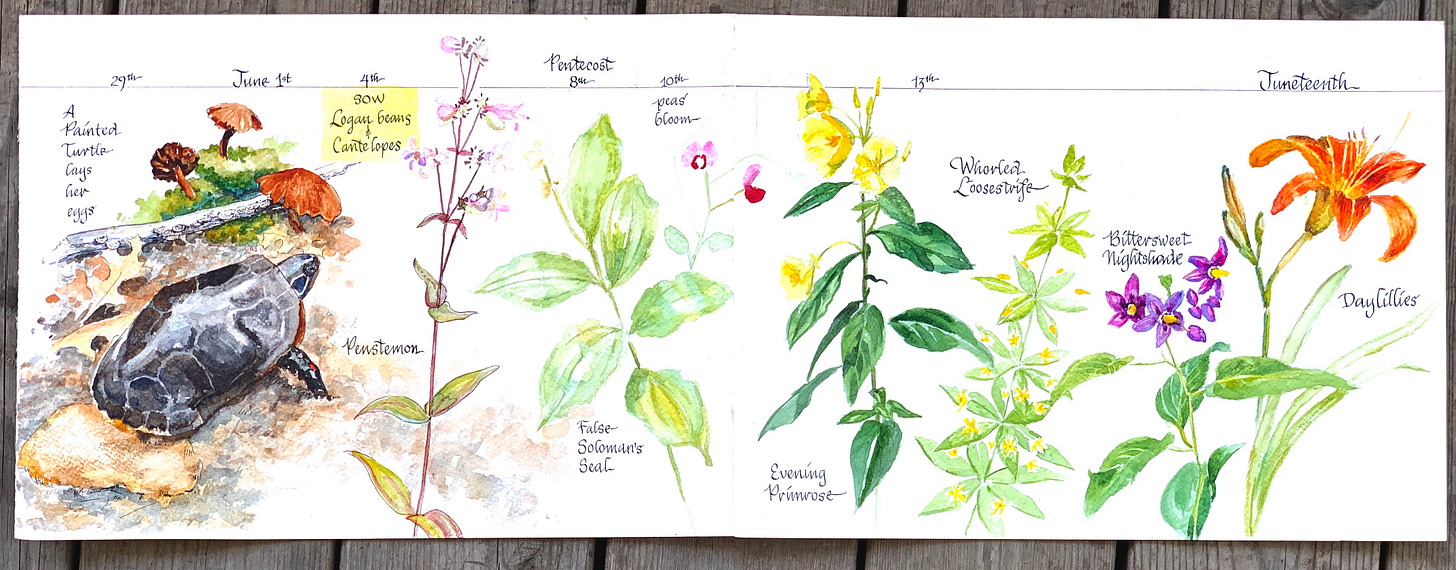 29th
June 1st
4th
Pentecost
8th
10th
13th
Juneteenth
A
Painted
Turtle
lays
her
eggs
SOW
Logan beans
&
Cantelopes
peas
bloom
Penstemon
False
Soloman's
Seal
Evening
Primrose
Whorled
Loosestrife
Bittersweet
Nightshade
Daylillies